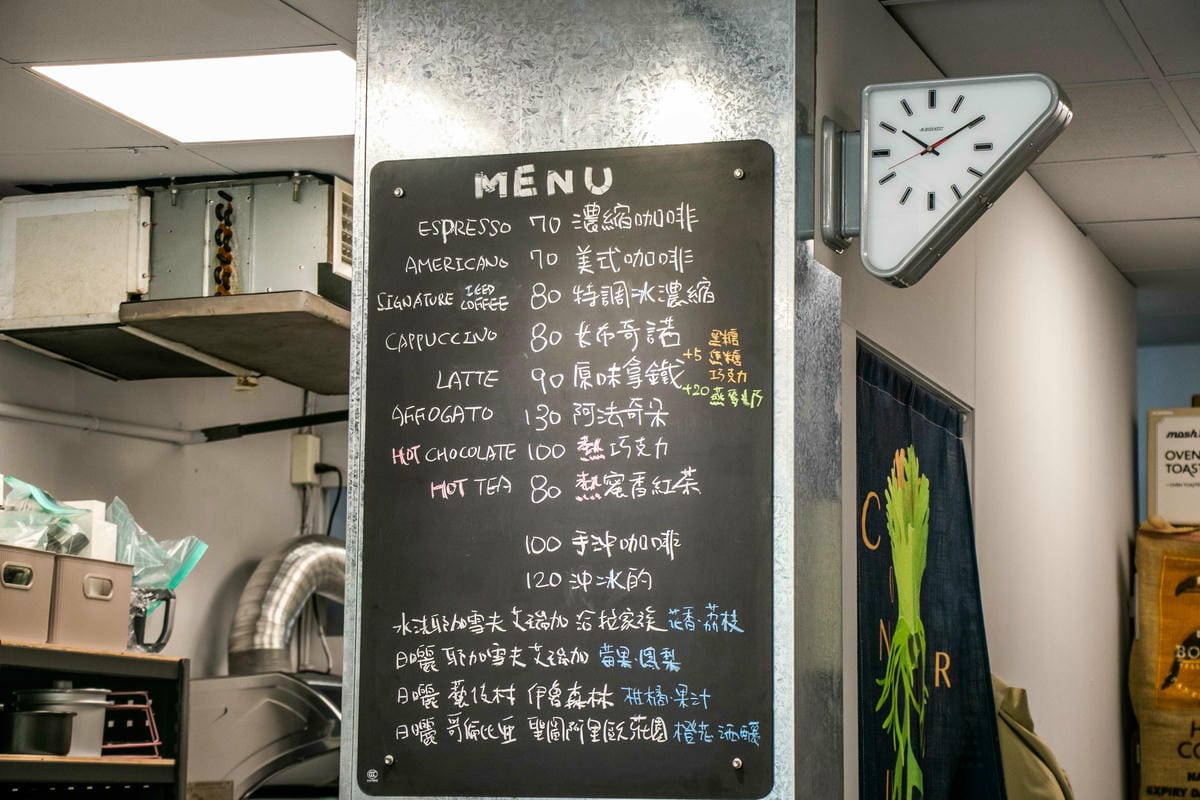 MENU
ESPRESSO 70 濃縮咖啡
AMERICANO 70 美式咖啡
SIGNATURE ICED COFFEE 80 特調冰濃縮
CAPPUCCINO 80 卡布奇諾
LATTE 90 原味拿鐵
黑糖
+5 焦糖
巧克力
+20 燕麥奶
AFFOGATO 130 阿法奇朵
HOT CHOCOLATE 100 熱巧克力
HOT TEA 80 熱蜜香紅茶
100 手沖咖啡
120 沖冰的
水洗 耶加雪夫 艾瑞加 洛拉家族 花香·荔枝
日曬 耶加雪夫 艾瑞加 莓果·鳳梨
日曬 藝伎村 伊魯森林 柑橘·果汁
日曬 哥倫比亞 聖圖阿里歐莊園 橙花 酒釀
C
N
R
OVEN
TOAST